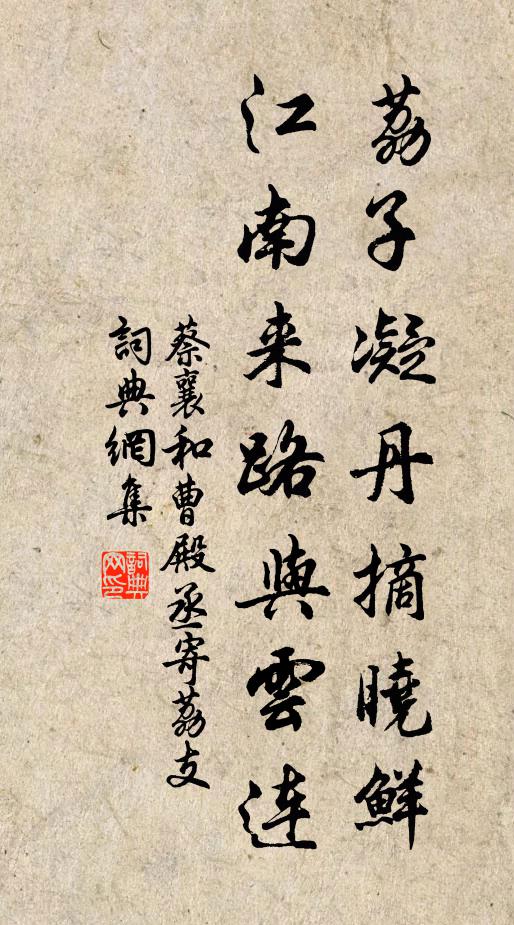 荔子凝丹摘曉鮮
江南来路與雲連
蔡襄和曹殿丞寄荔支
詞典網集
詞典网印